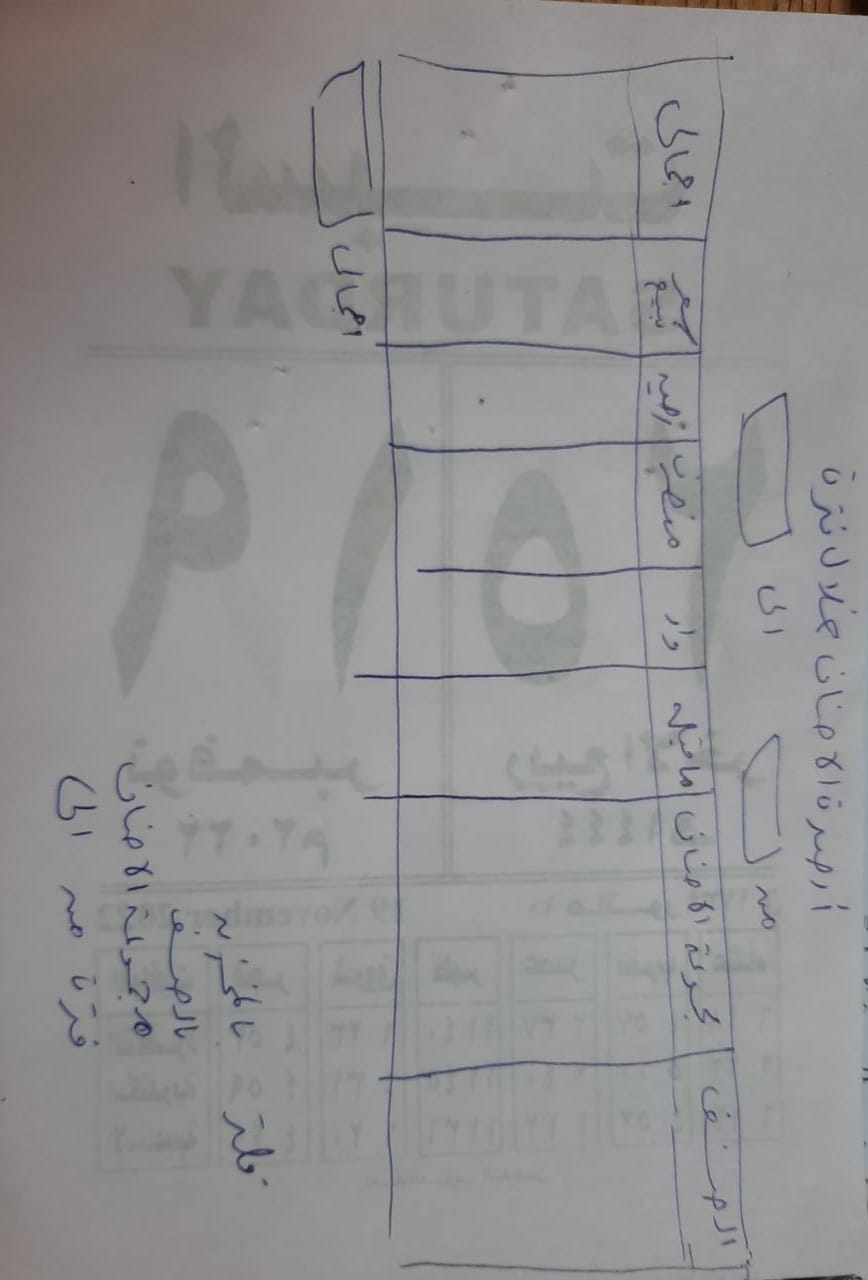 أرصدة الاصناف خلال فترة
من الى
الصنف مجموعة الاصناف ماقبله وارد منصرف رصيد سعر تبيع اجمالى
اجمالى
فلتر بالمخزن
بالصنف
مجموعة الاصناف
فترة من الى